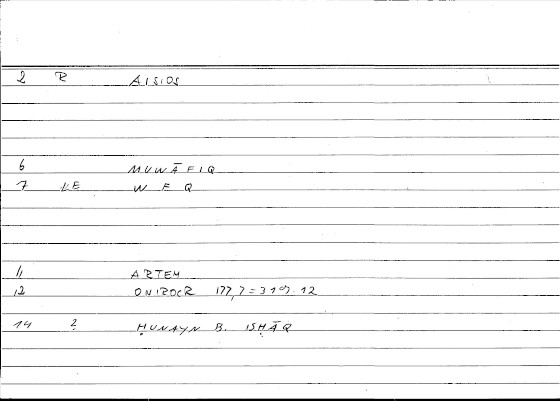 2 R AISIOS
6 MUWĀFIQ
7 KE W F Q
11 ARTEM
12 ONIROCR 177,7 = 319.12
14 2 ḤUNAYN B. ISḤĀQ